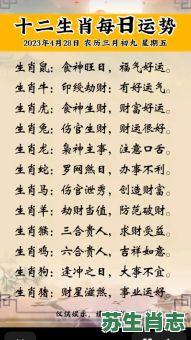 十二生肖每日运势
2023年4月28日 农历三月初九 星期五
生肖鼠：食神旺日，福气好运。
生肖牛：印绶劫财，有好运气。
生肖虎：食神生财，财富好运。
生肖兔：伤官生财，财运很好。
生肖龙：枭神主事，注意口舌。
生肖蛇：罗网然日，办事不利。
生肖马：伤官泄秀，创造财富。
生肖羊：劫财当值，防范破财。
生肖猴：三合贵人，求财受益。
生肖鸡：六合贵人，吉祥如意。
生肖狗：逢冲之日，大事不宜。
生肖猪：财星滋然，事业运好。
仅供娱乐，
苏生肖志